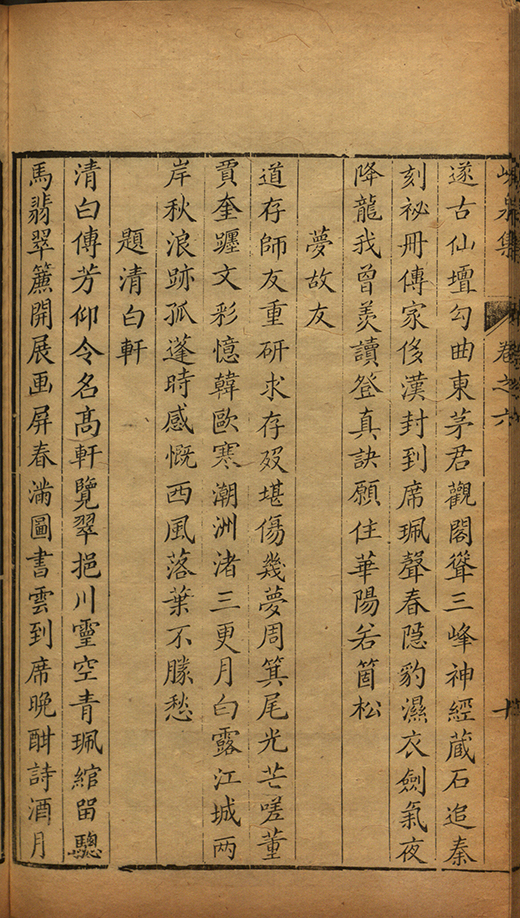 峴泉集 卷之六 十
遂古仙壇勾曲東茅君觀閣聳三峰神經蔵石追秦
刻祕冊傳家侈漢封到席珮聲春隱豹濕衣劍氣夜
降龍我曾羡讀登真訣願住華陽若箇松
夢故友
道存師友重研求存歿堪傷幾夢周箕尾光芒嗟董
賈奎躔文彩憶韓歐寒潮洲渚三更月白露江城两
岸秋浪跡孤蓬時感慨西風落葉不勝愁
題清白軒
清白傳芳仰令名高軒覽翠挹川靈空青珮綰留驄
馬翡翠簾開展画屏春滿圖書雲到席晚酣詩酒月